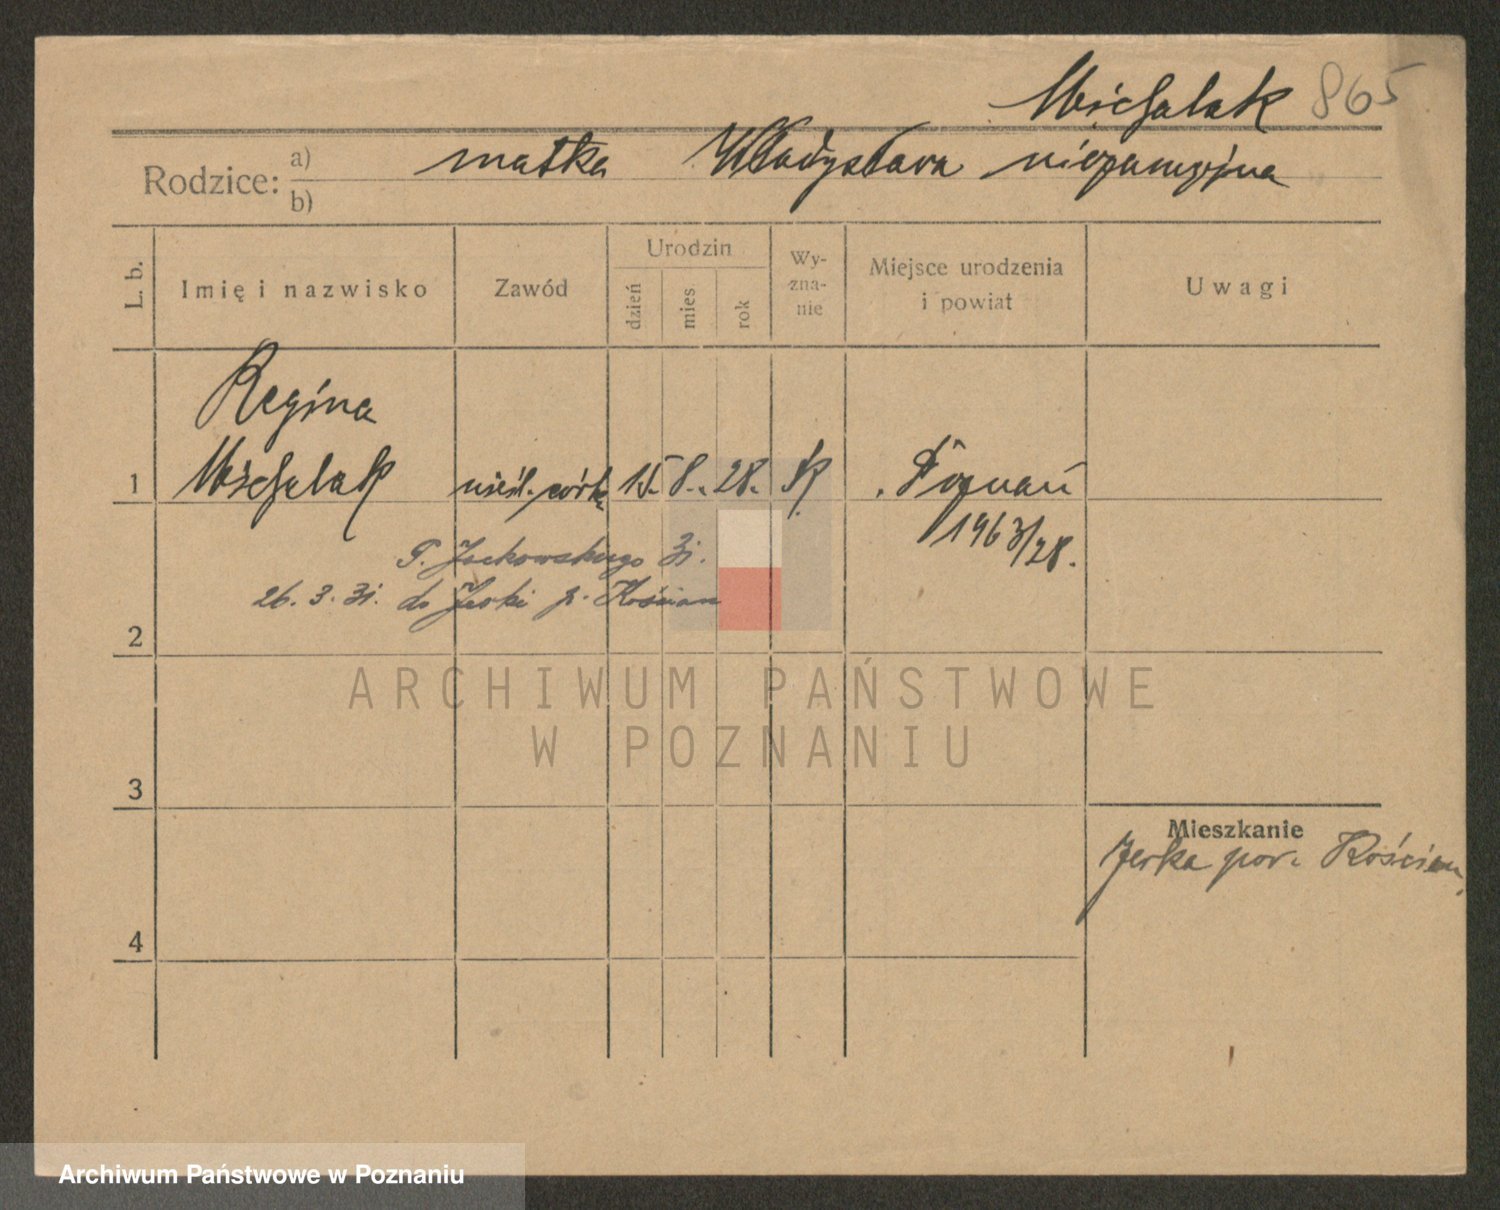 Michalak 865
Rodzice: a) b) matka Władysława niezamężna
L. b.
Imię i nazwisko
Zawód
Urodzin
dzień
mies
rok
Wy-
zna-
nie
Miejsce urodzenia
i powiat
Uwagi
Regina
1 Michalak nieśl. córka 15. 8. 28. K. Poznań
1963/28.
P. Jackowskiego 31.
26. 3. 31. do Jerki p. Kościan
2
ARCHIWUM PAŃSTWOWE
W POZNANIU
3
Mieszkanie
Jerka pow. Kościan,
4
Archiwum Państwowe w Poznaniu